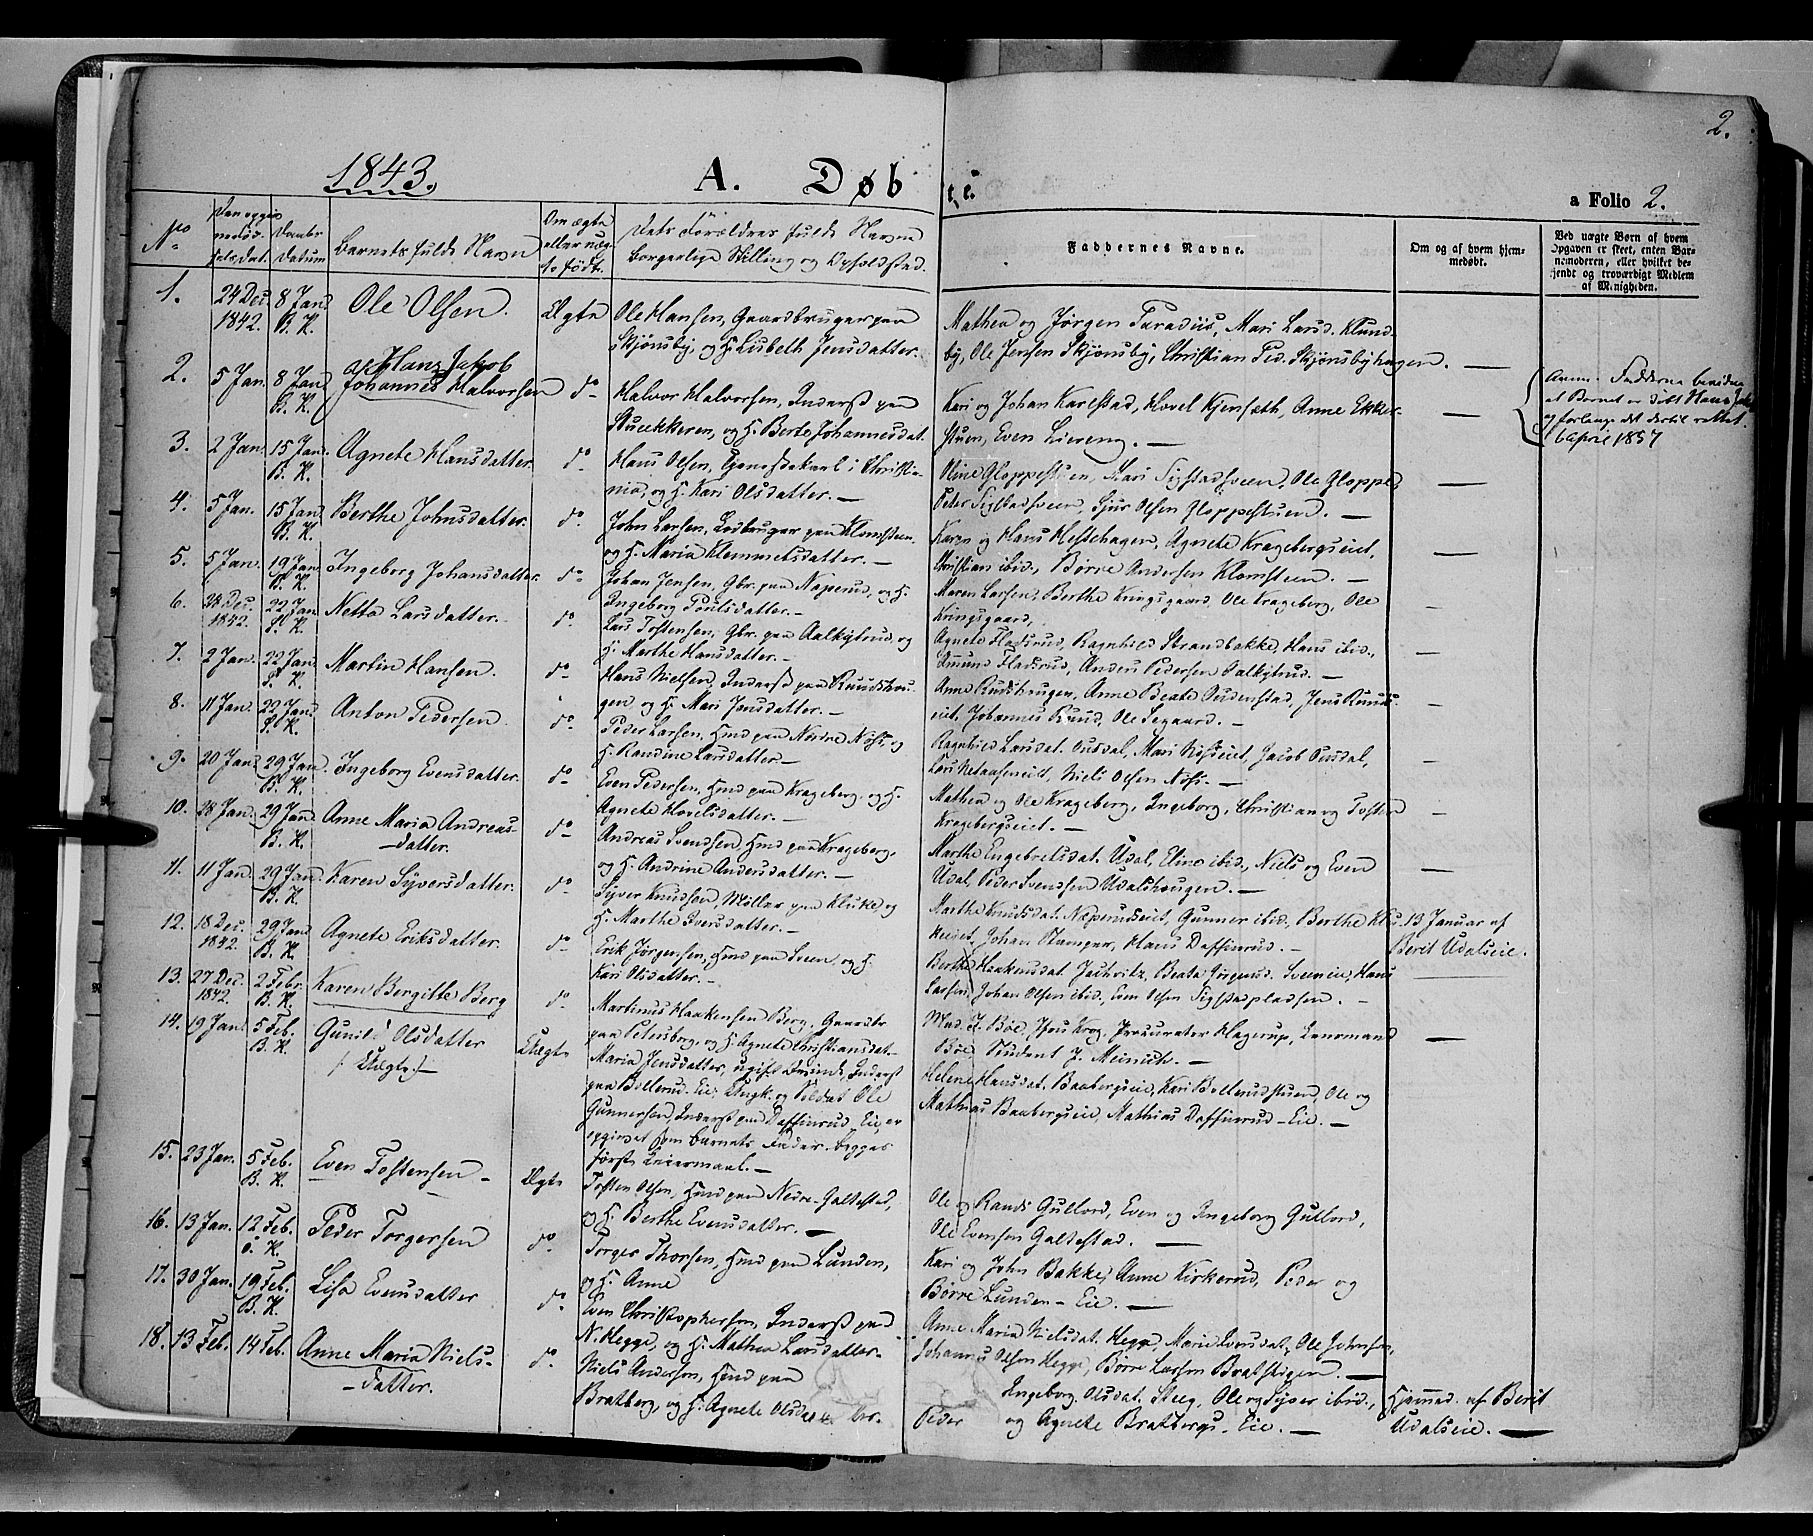 2.
1843.
A. Døbte.
a Folio 2.
No
Den opgivne Fødselsdat.
Daabs Datum
Barnets fulde Navn
Om ægte eller uægte født.
Dets Forældres fulde Navne Borgerlige Stilling og Opholdsted.
Faddernes Navne.
Om og af hvem hjemmedøbt.
Ved uægte Børn af hvem Opgaven er skeet, enten Barnemoderen, eller hvilket bekjendt og troværdigt Medlem af Menigheden.
1. 24 Dec. 1842. 8 Jan. B. K. Ole Olsen. Ægte
Ole Hansen, Gaardbruger paa
Skjønsby, og H. Lisbeth Jensdatter.
Mathea og Jørgen Paradiis, Mari Larsd. Klund-
by, Ole Jensen Skjønsby, Christian Ped. Skjønsbyhagen. —
2. 5 Jan. 8 Jan. B. K. Hans Jakob
Johannes Halvorsen do
Halvor Halvorsen, Inderst paa
Stuekkeren, og H. Berte Johannesdat.
Kari og Johan Karlstad, Hovel Kjensæth, Anne Ekker-
stuen, Even Liereng. —
Anm. Fadderne bevidne
at Barnet er døbt Hans Jakob
og forlange det dertil rettet.
6 April 1857
3. 2 Jan. 15 Jan. B. K. Agnete Hansdatter. do
Hans Olsen, Tjenestekarl i Christia-
nia, og H. Kari Olsdatter. —
Oline Gloppestuen, Mari Sigstadsveen, Ole Gloppe,
Peder Sigstadsveen, Sjur Olsen Gloppestuen. —
4. 5 Jan. 15 Jan. B. K. Berthe Johnsdatter. do
John Larsen, Leibruger paa Klomsteen,
og H. Maria Klemmetsdatter. —
Karen og Hans Hestehagen, Agnete Kragebergseiet,
Christian ibid., Børre Andersen Klomsteen. —
5. 5 Jan. 19 Jan. B. K. Ingeborg Johansdatter. do
Johan Jensen, Gbr. paa Næperud, og H.
Ingeborg Poulsdatter. —
Maren Larsen, Berthe Kringsgaard, Ole Krageberg, Ole
Kringsgaard,
6. 28 Dec. 1842. 22 Jan. S. K. Netta Larsdatter. do
Lars Tostensen, Gbr. paa Aalkytrud, og
H. Marthe Hansdatter. —
Agnete Fladsrud, Ragnhild Strandbakke, Hans ibid.,
Amund Fladsrud, Anders Pedersen Aalkytrud. —
7. 2 Jan. 22 Jan. S. K. Martin Hansen. do
Hans Nielsen, Inderst paa Ruudshau-
gen og H. Mari Jensdatter. —
Anne Rudshaugen, Anne Beate Oudenstad, Jens Ruuds-
eiet, Johannes Ruud, Ole Segaard. —
8. 11 Jan. 22 Jan. S. K. Anton Pedersen do
Peder Larsen, Hmd paa Nordre Nøss, og
H. Randine Larsdatter. —
Ragnhild Larsdat. Ousdal, Mari Nøsseiet, Jacob Ousdal,
Niels Olsen Nøss. —
9. 20 Jan. 29 Jan. B. K. Ingeborg Evensdatter. do
Even Pedersen, Hmd paa Krageberg, og H.
Agnete Hovelsdatter. —
Mathea og Ole Krageberg, Ingeborg, Christian og Tosten
Kragebergseiet. —
10. 18 Jan. 29 Jan. B. K. Anne Maria Andreas-
datter. do
Andreas Svendsen, Hmd paa Krageberg,
og H. Andrine Andersdatter. —
Marthe Engebretsdat. Udal, Eline ibid., Niels og Even
Udal, Peder Svendsen Udalshaugen. —
11. 11 Jan. 29 Jan. B. K. Karen Syversdatter. do
Syver Knudsen, Møller paa Kluke, og
H. Marthe Iversdatter. —
Marthe Knudsdat. Næperudseiet, Gunner ibid., Berthe Klu-
keeiet, Johan Stamper, Hans Daffinrud. —
13 Januar af
Berit Udalseie.
12. 18 Dec. 1842. 29 Jan. B. K. Agnete Eriksdatter. do
Erik Jørgensen, Hmd paa Sveen, og H.
Kari Olsdatter. —
Berthe Haakensdat. Beate Jørgensd. Sveneie, Hans
Larsen, Johan Olsen ibid., Even Olsen Sigstadpladsen. —
13. 27 Dec. 1842. 2 Febr. B. K. Karen Bergitte Berg do
Martinus Haakensen Berg, Gaardbr.
paa Petersborg, og H. Agnete Christiansdat. —
Mad. J. Bøe, Jfru Krog, Procurator Hagerup, Lensmand
Bøe, Student J. Meinich. —
14. 19 Jan. 5 Feb. B. K. Gunil Olsdatter
/: Uægte :/ Uægte
Maria Jensdatter, ugift Qvinde, Inderst
paa Bollerud-Eie; Ungk. og Soldat Ole
Gunnersen, Inderst paa Daffinrud-Eie, er
opgivet som Barnets Fader. begges
første Leiermaal. —
Helene Hansdat. Baabergseie, Kari Bollerudstuen, Ole og
Mathias Baabergseie, Mathias Daffinrud-Eie. —
15. 23 Jan. 5 Feb. B. K. Even Tostensen Ægte
Tosten Olsen, Hmd paa Nedre-Galtestad,
og H. Berthe Evensdatter. —
Ole og Randi Gullord, Even og Ingeborg Gullord,
Ole Evensen Galtestad. —
16. 13 Jan. 12 Feb. Ø. K. Peder Torgersen do
Torger Thorsen, Hmd paa Lunden,
og H. Anne
Kari og John Bakke, Anne Kirkerud, Peder og
Børre Lunden-Eie. —
17. 30 Jan. 19 Feb. B. K. Lisa Evensdatter do
Even Christophersen, Inderst paa
N. Hegge, og H. Mathea Larsdatter.
Anne Maria Nielsdat. Hegge, Marie Evensdat., Ole Johnsen,
Johannes Olsen Hegge, Børre Larsen Bratstigen. —
18. 13 Feb. 14 Feb. Anne Maria Niels-
datter. do
Niels Andersen, Hmd paa
Bratberg, og H. Agnete Olsdatter.
Ingeborg Olsdat. Steeg, Ole og Syver ibid.,
Peder og Agnete Bratbergs-Eie. —
Hjemmed. af Berit
Udalseie. —